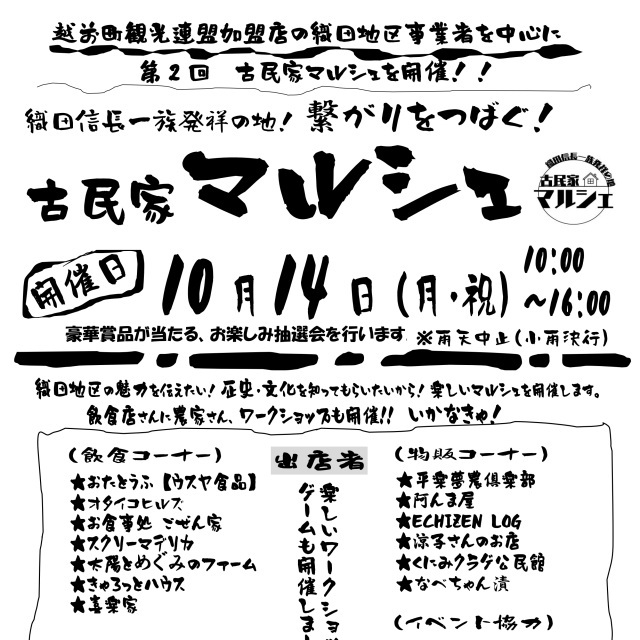 越前町観光連盟加盟店の織田地区事業者を中心に
第2回 古民家マルシェを開催！！
織田信長一族発祥の地！繋がりをつばぐ！
古民家マルシェ
織田信長一族発祥の地
古民家
マルシェ
開催日
10月14日(月・祝)
10:00
～16:00
豪華賞品が当たる、お楽しみ抽選会を行います
※雨天中止(小雨決行)
織田地区の魅力を伝えたい！歴史・文化を知ってもらいたいから！楽しいマルシェを開催します。
飲食店さんに農家さん、ワークショップも開催!! いかなきゃ！
(飲食コーナー)
★おたとうふ【ウスヤ食品】
★オタイコヒルズ
★お食事処 ごぜん家
★スクリーマデリカ
★太陽とめぐみのファーム
★きゃろっとハウス
★喜楽家
出店者
楽しいワークショッ
ゲームも開催しま
(物販コーナー)
★平楽夢農倶楽部
★阿んま屋
★ECHIZEN LOG
★涼子さんのお店
★くにみクラゲ公民館
★なべちゃん漬
(イベント協力)